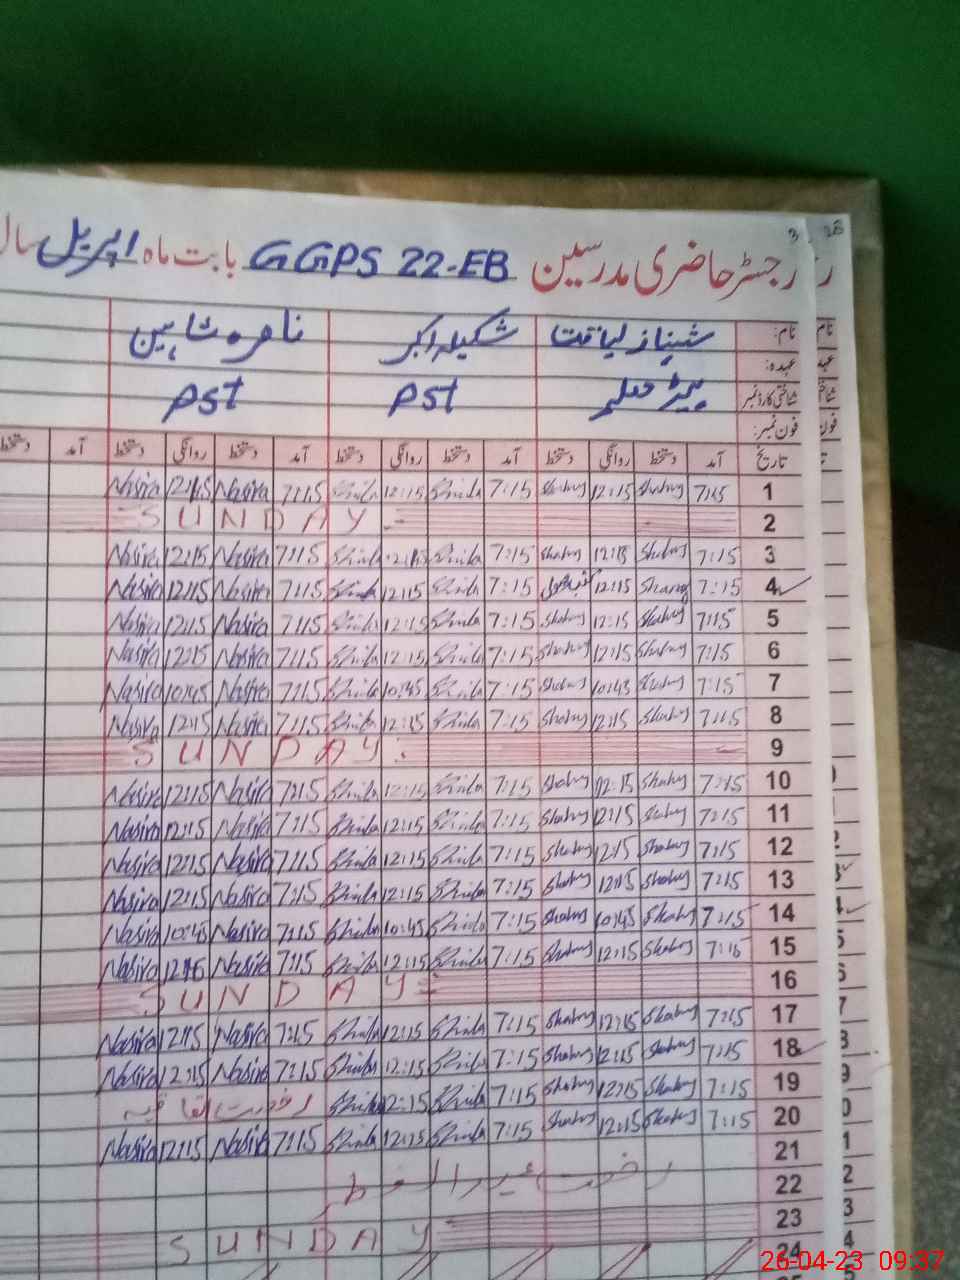 رجسٹر حاضری مدرسین GGPS 22-EB بابت ماہ اپریل سال
نام: شہناز لیاقت شکیلہ اکبر ناصرہ شاہین
عہدہ:
شناختی کارڈ نمبر ہیڈ معلمہ PST PST
فون نمبر:
تاریخ آمد دستخط روانگی دستخط آمد دستخط روانگی دستخط آمد دستخط روانگی دستخط آمد دستخط
1 7:15 Shahnaz 12:15 Shahnaz 7:15 Shkila 12:15 Shkila 7:15 Nasira 12:15 Nasira
2 SUNDAY
3 7:15 Shahnaz 12:15 Shahnaz 7:15 Shkila 12:15 Shkila 7:15 Nasira 12:15 Nasira
4 7:15 Shahnaz 12:15 7:15 Shkila 12:15 Shkila 7:15 Nasira 12:15 Nasira
5 7:15 Shahnaz 12:15 Shahnaz 7:15 Shkila 12:15 Shkila 7:15 Nasira 12:15 Nasira
6 7:15 Shahnaz 12:15 Shahnaz 7:15 Shkila 12:15 Shkila 7:15 Nasira 12:15 Nasira
7 7:15 Shahnaz 10:45 Shahnaz 7:15 Shkila 10:45 Shkila 7:15 Nasira 10:45 Nasira
8 7:15 Shahnaz 12:15 Shahnaz 7:15 Shkila 12:15 Shkila 7:15 Nasira 12:15 Nasira
9 SUNDAY
10 7:15 Shahnaz 12:15 Shahnaz 7:15 Shkila 12:15 Shkila 7:15 Nasira 12:15 Nasira
11 7:15 Shahnaz 12:15 Shahnaz 7:15 Shkila 12:15 Shkila 7:15 Nasira 12:15 Nasira
12 7:15 Shahnaz 12:15 Shahnaz 7:15 Shkila 12:15 Shkila 7:15 Nasira 12:15 Nasira
13 7:15 Shahnaz 12:15 Shahnaz 7:15 Shkila 12:15 Shkila 7:15 Nasira 12:15 Nasira
14 7:15 Shahnaz 10:45 Shahnaz 7:15 Shkila 10:45 Shkila 7:15 Nasira 10:45 Nasira
15 7:15 Shahnaz 12:15 Shahnaz 7:15 Shkila 12:15 Shkila 7:15 Nasira 12:15 Nasira
16 SUNDAY
17 7:15 Shahnaz 12:15 Shahnaz 7:15 Shkila 12:15 Shkila 7:15 Nasira 12:15 Nasira
18 7:15 Shahnaz 12:15 Shahnaz 7:15 Shkila 12:15 Shkila 7:15 Nasira 12:15 Nasira
19 7:15 Shahnaz 12:15 Shahnaz 7:15 Shkila 12:15 Shkila رخصت اتفاقیہ
20 7:15 Shahnaz 12:15 Shahnaz 7:15 Shkila 12:15 Shkila 7:15 Nasira 12:15 Nasira
21
22 رخصت عید الفطر
23
24 SUNDAY
26-04-23 09:37